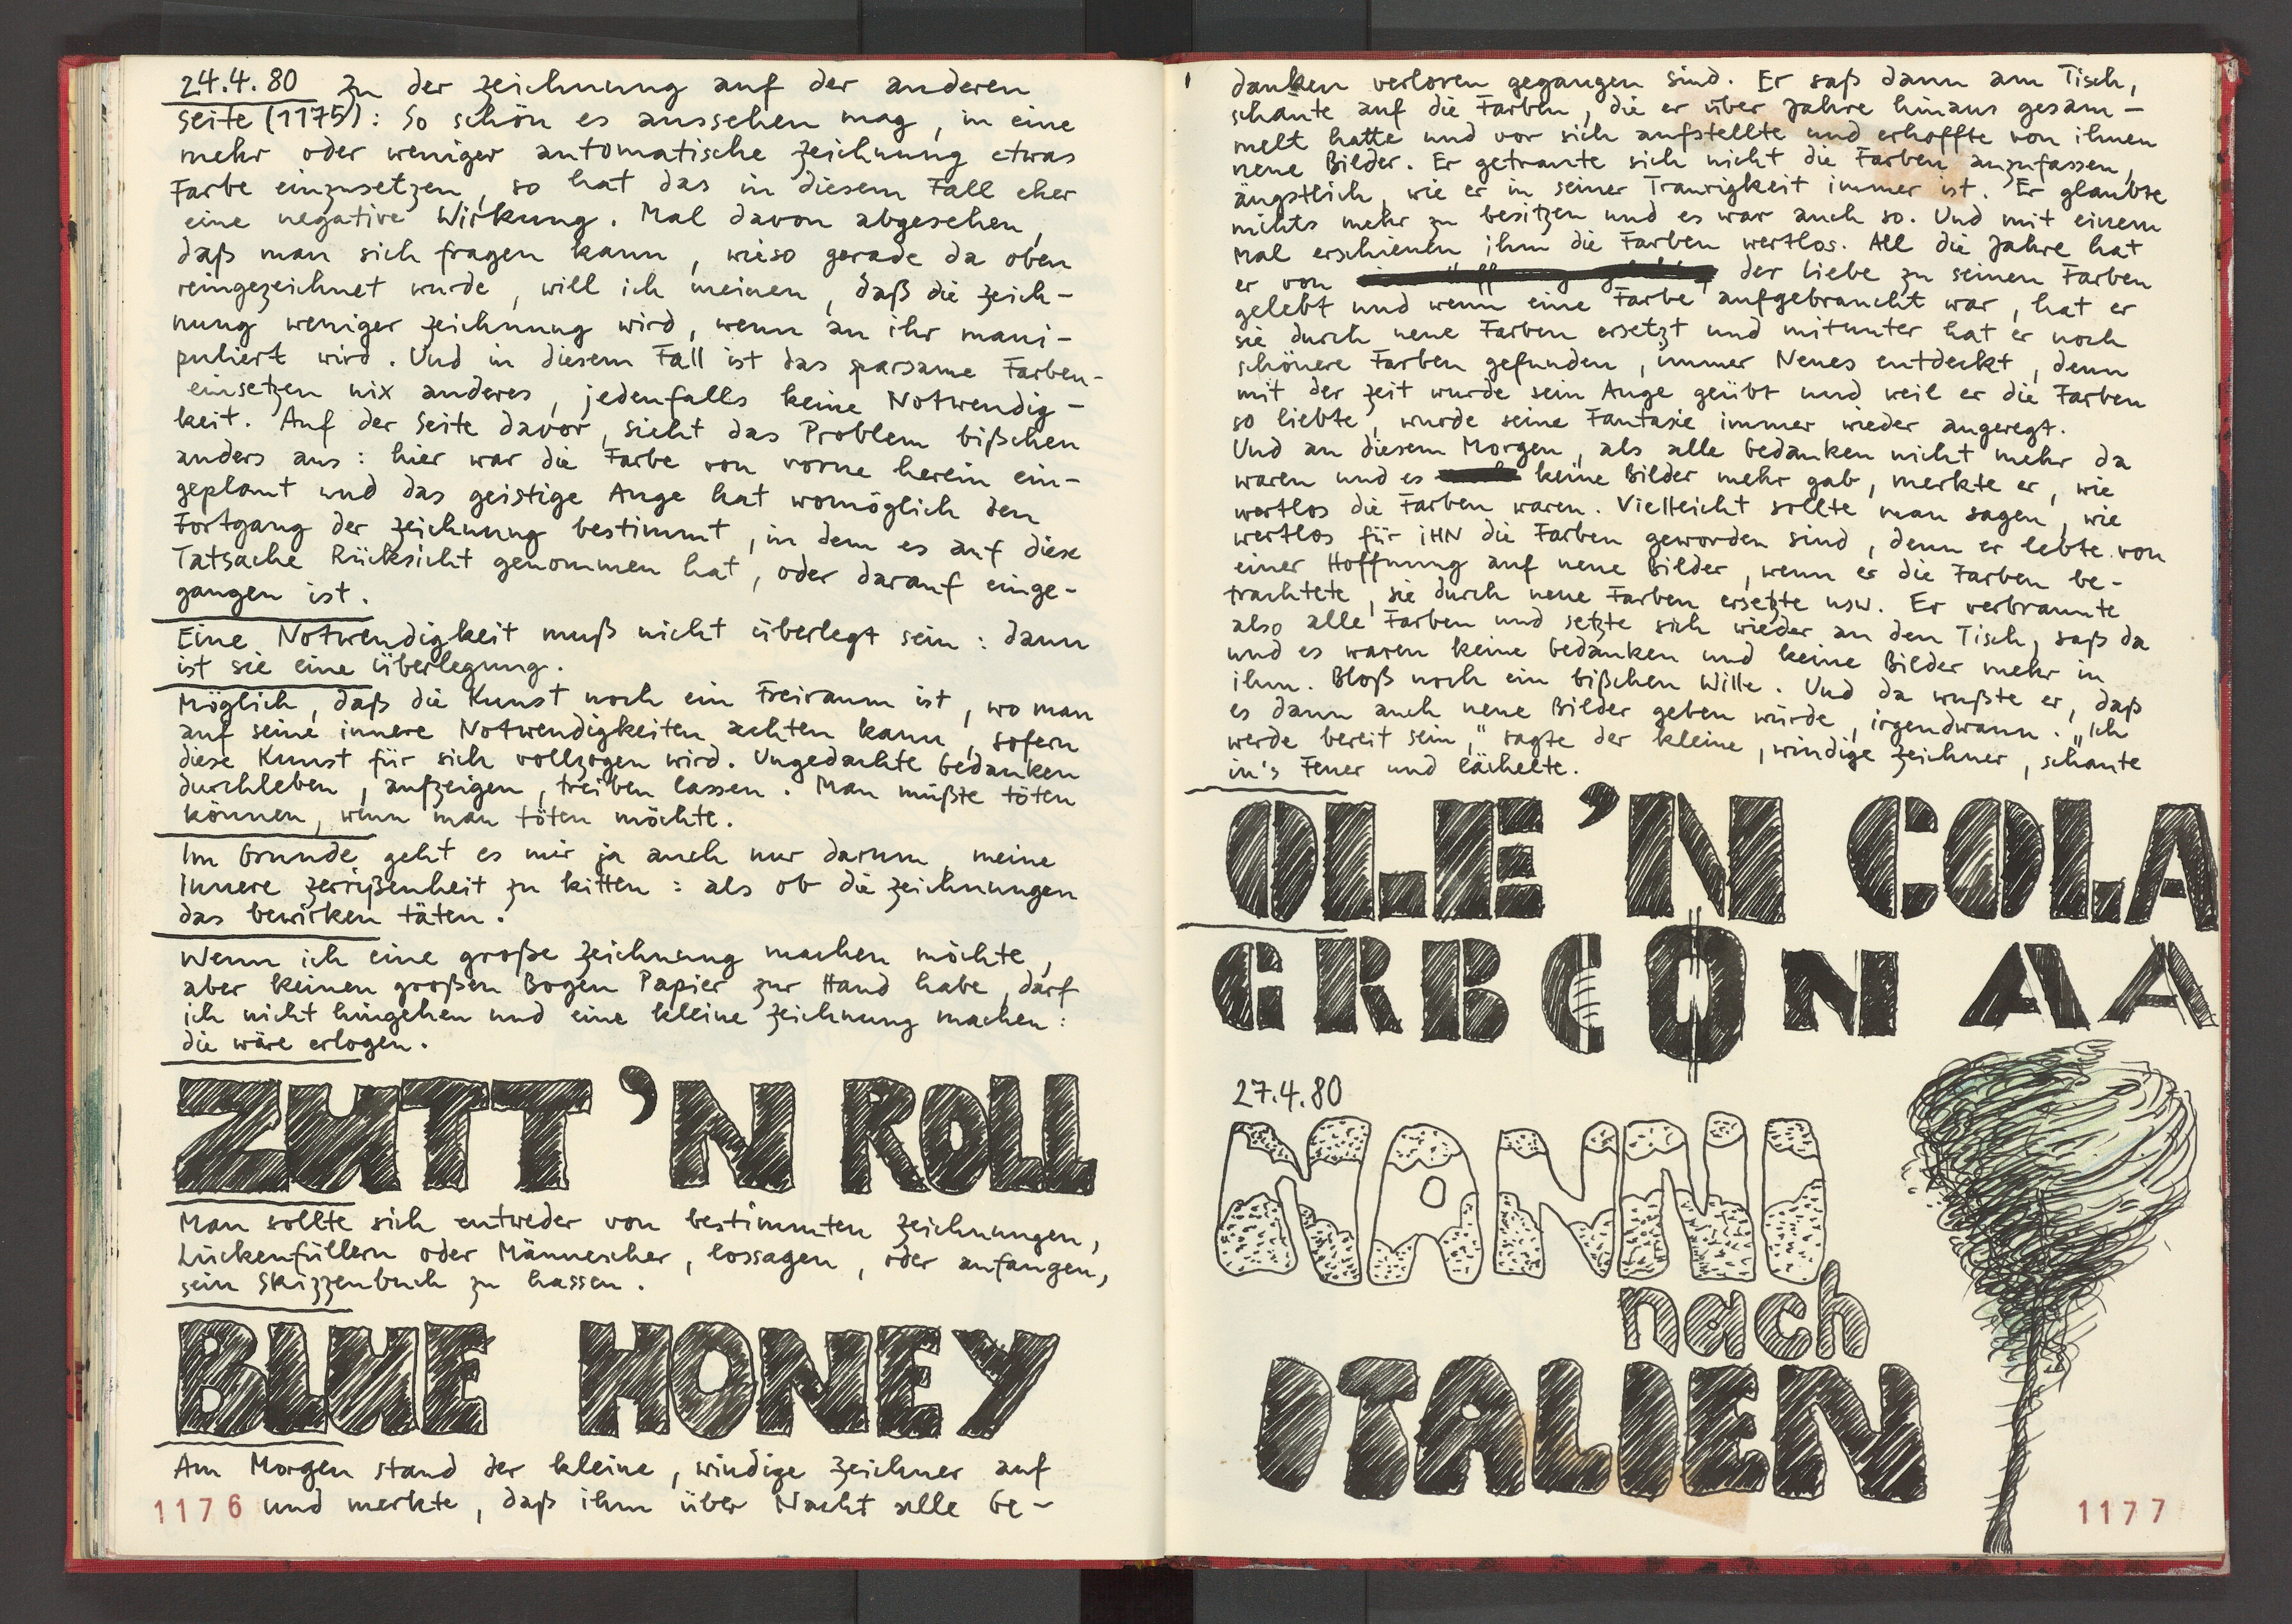 24.4.80 Zu der Zeichnung auf der anderen
Seite (1175): So schön es aussehen mag, in eine
mehr oder weniger automatische Zeichnung etwas
Farbe einzusetzen, so hat das in diesem Fall eher
eine negative Wirkung. Mal davon abgesehen,
daß man sich fragen kann, wieso gerade da oben
reingezeichnet wurde, will ich meinen, daß die Zeich-
nung weniger Zeichnung wird, wenn an ihr mani-
puliert wird. Und in diesem Fall ist das sparsame Farben-
einsetzen nix anderes, jedenfalls keine Notwendig-
keit. Auf der Seite davor, sieht das Problem bißchen
anders aus: hier war die Farbe von vorne herein ein-
geplant und das geistige Auge hat womöglich den
Fortgang der Zeichnung bestimmt, in dem es auf diese
Tatsache Rücksicht genommen hat, oder darauf einge-
gangen ist.
Eine Notwendigkeit muß nicht überlegt sein: dann
ist sie eine Überlegung.
Möglich, daß die Kunst noch ein Freiraum ist, wo man
auf seine innere Notwendigkeiten achten kann, sofern
diese Kunst für sich vollzogen wird. Ungedachte Gedanken
durchleben, aufzeigen, treiben lassen. Man müßte töten
können, wenn man töten möchte.
Im Grunde geht es mir ja auch nur darum, meine
Innere Zerrißenheit zu kitten: als ob die Zeichnungen
das bewirken täten.
Wenn ich eine große Zeichnung machen möchte,
aber keinen großen Bogen Papier zur Hand habe, darf
ich nicht hingehen und eine kleine Zeichnung machen:
die wäre erlogen.
ZUTT'N ROLL
Man sollte sich entweder von bestimmten Zeichnungen,
Lückenfüllern oder Männescher, lossagen, oder anfangen,
sein Skizzenbuch zu hassen.
BLUE HONEY
Am Morgen stand der kleine, windige Zeichner auf
1176 und merkte, daß ihm über Nacht alle Ge-
danken verloren gegangen sind. Er saß dann am Tisch,
schaute auf die Farben, die er über Jahre hinaus gesam-
melt hatte und vor sich aufstellte und erhoffte von ihnen
neue Bilder. Er getraute sich nicht die Farben anzufassen,
ängstlich, wie er in seiner Traurigkeit immer ist. Er glaubte
nichts mehr zu besitzen und es war auch so. Und mit einem
Mal erschienen ihm die Farben wertlos. All die Jahre hat
er von der Liebe zu seinen Farben
gelebt und wenn eine Farbe aufgebraucht war, hat er
sie durch neue Farben ersetzt und mitunter hat er noch
schönere Farben gefunden, immer Neues entdeckt, denn
mit der Zeit wurde sein Auge geübt und weil er die Farben
so liebte, wurde seine Fantasie immer wieder angeregt.
Und an diesem Morgen, als alle Gedanken nicht mehr da
waren und es keine Bilder mehr gab, merkte er, wie
wertlos die Farben waren. Vielleicht sollte man sagen, wie
wertlos für IHN die Farben geworden sind, denn er lebte von
einer Hoffnung auf neue Bilder, wenn er die Farben be-
trachtete, sie durch neue Farben ersetzte usw. Er verbrannte
also alle Farben und setzte sich wieder an den Tisch, saß da
und es waren keine Gedanken und keine Bilder mehr in
ihm. Bloß noch ein bißchen Wille. Und da wußte er, daß
es dann auch neue Bilder geben würde, irgendwann. „Ich
werde bereit sein," sagte der kleine, windige Zeichner, schaute
in's Feuer und lächelte.
OLLE'N COLA
GRB CON AA
27.4.80
NANNI
nach
ITALIEN
1177